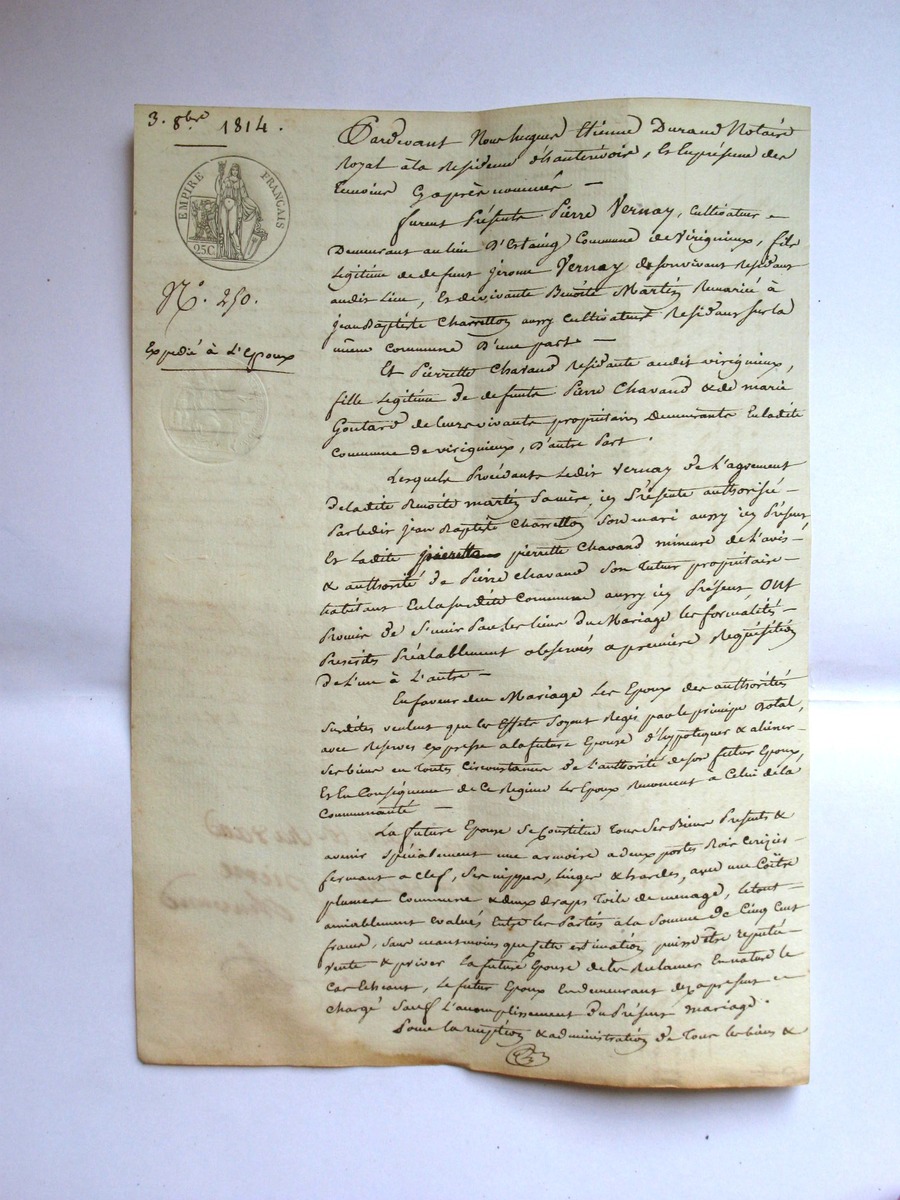 3. 8bre 1814.
EMPIRE FRANÇAIS
25C
N°. 250.
Expedié à L'Epoux
Pardevant Nous hugues Etienne Durand Notaire
Royal à la Residence de hauterivoire, Et En présence des
temoins Cy après nommés —
furent Présents Pierre Vernay, Cultivateur
Demeurant au lieu D'Estaing Commune de Virigneux, fils
Legitime de defunt jérome Vernay de son vivant Residant
audit Lieu, Et de vivante Benoite Martin Remariée à
jean Baptiste Charretton aussy Cultivateur Residant sur la
même Commune D'une part —
Et Pierrette Chavand Residante audit virigneux,
fille Legitime de defunts Pierre Chavand & de marie
Goutard de leurs vivants propriétaires demeurants En ladite
Commune de virigneux, D'autre Part.
Lesquels Procédants Ledit Vernay de L'agrement
de ladite Benoite martin sa mère, icy Présente authorisée
Par ledit jean Baptiste Charretton son mari aussy icy Présent
Et Ladite pierrette Chavand mineure de L'avis
& authorité de Pierre Chavand son tuteur propriétaire
habitant En la susdite Commune aussy icy Présent, Ont
Promis de S'unir Par les liens du Mariage les formalités
Prescrites Préalablement observées a première Requisition
de L'un à L'autre —
En faveur du Mariage Les Epoux des authorités
susdites veulent que les Effets soyent Regis par le principe Dotal,
avec Reserves expresse a la future Epouse d'hypotéquer & aliéner
ses biens en toutes Circonstances de L'authorité de son futur Epoux,
Et En Conséquence de Ce Regime Les Epoux Renoncent à Celui de la
Communauté —
La future Epouse se Constitue tous ses Biens Présents &
avenir spécialement une armoire a deux portes Bois Cerizier
fermant a clef, ses nippes, linges & hardes, avec une Coëtre
plumes Commune & deux draps Toile de menage, le tout
amiablement evalués Entre les Parties à la somme de Cinq Cent
francs, sans neantmoins que cette estimation puisse être reputée
vente & priver La future Epouse de les Reclamer En nature le
Cas Echeant, Le futur Epoux En demeurant dez a present
Chargé sauf L'accomplissement du Présent mariage.
Pour la reception & administration de Tous les biens &